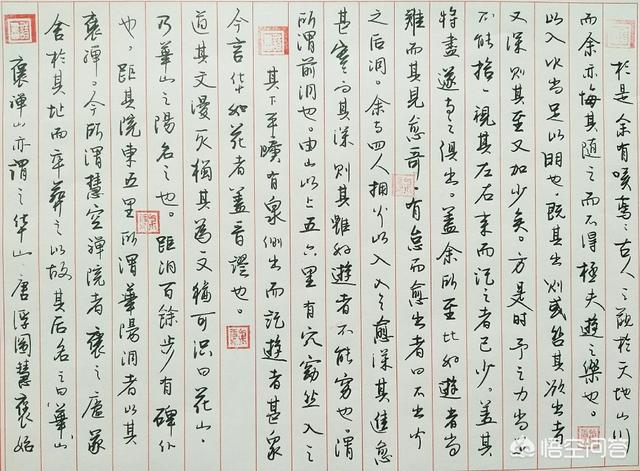 褒禪山亦謂之华山。唐浮圖慧褒始
舍於其址而卒葬之以故其后名之曰華山
褒禪。今所謂慧空禪院者褒之廬冢
也。距其院東五里所謂華陽洞者以其
乃華山之陽名之也。距洞百餘步有碑仆
道其文漫灭猶其為文猶可识曰花山。
今言华如花者盖音謬也。
其下平曠有泉側出而記遊者甚衆
所謂前洞也。由山以上五六里有穴窈然入之
甚寒问其深則其好遊者不能窮也謂
之后洞。余与四人擁火以入入之愈深其進愈
難而其見愈奇有怠而愈出者曰不出火
特盡遂与之俱出。盖余所至比好遊者尚
不能拾一視其左右来而記之者已少。盖其
又深則其至又加少矣。方是时予之力尚足
以入火尚足以明也。既其出則或咎其欲出者
而余亦悔其隨之而不得極夫遊之樂也。
於是余有嘆焉：古人之觀於天地山川
悟空问答